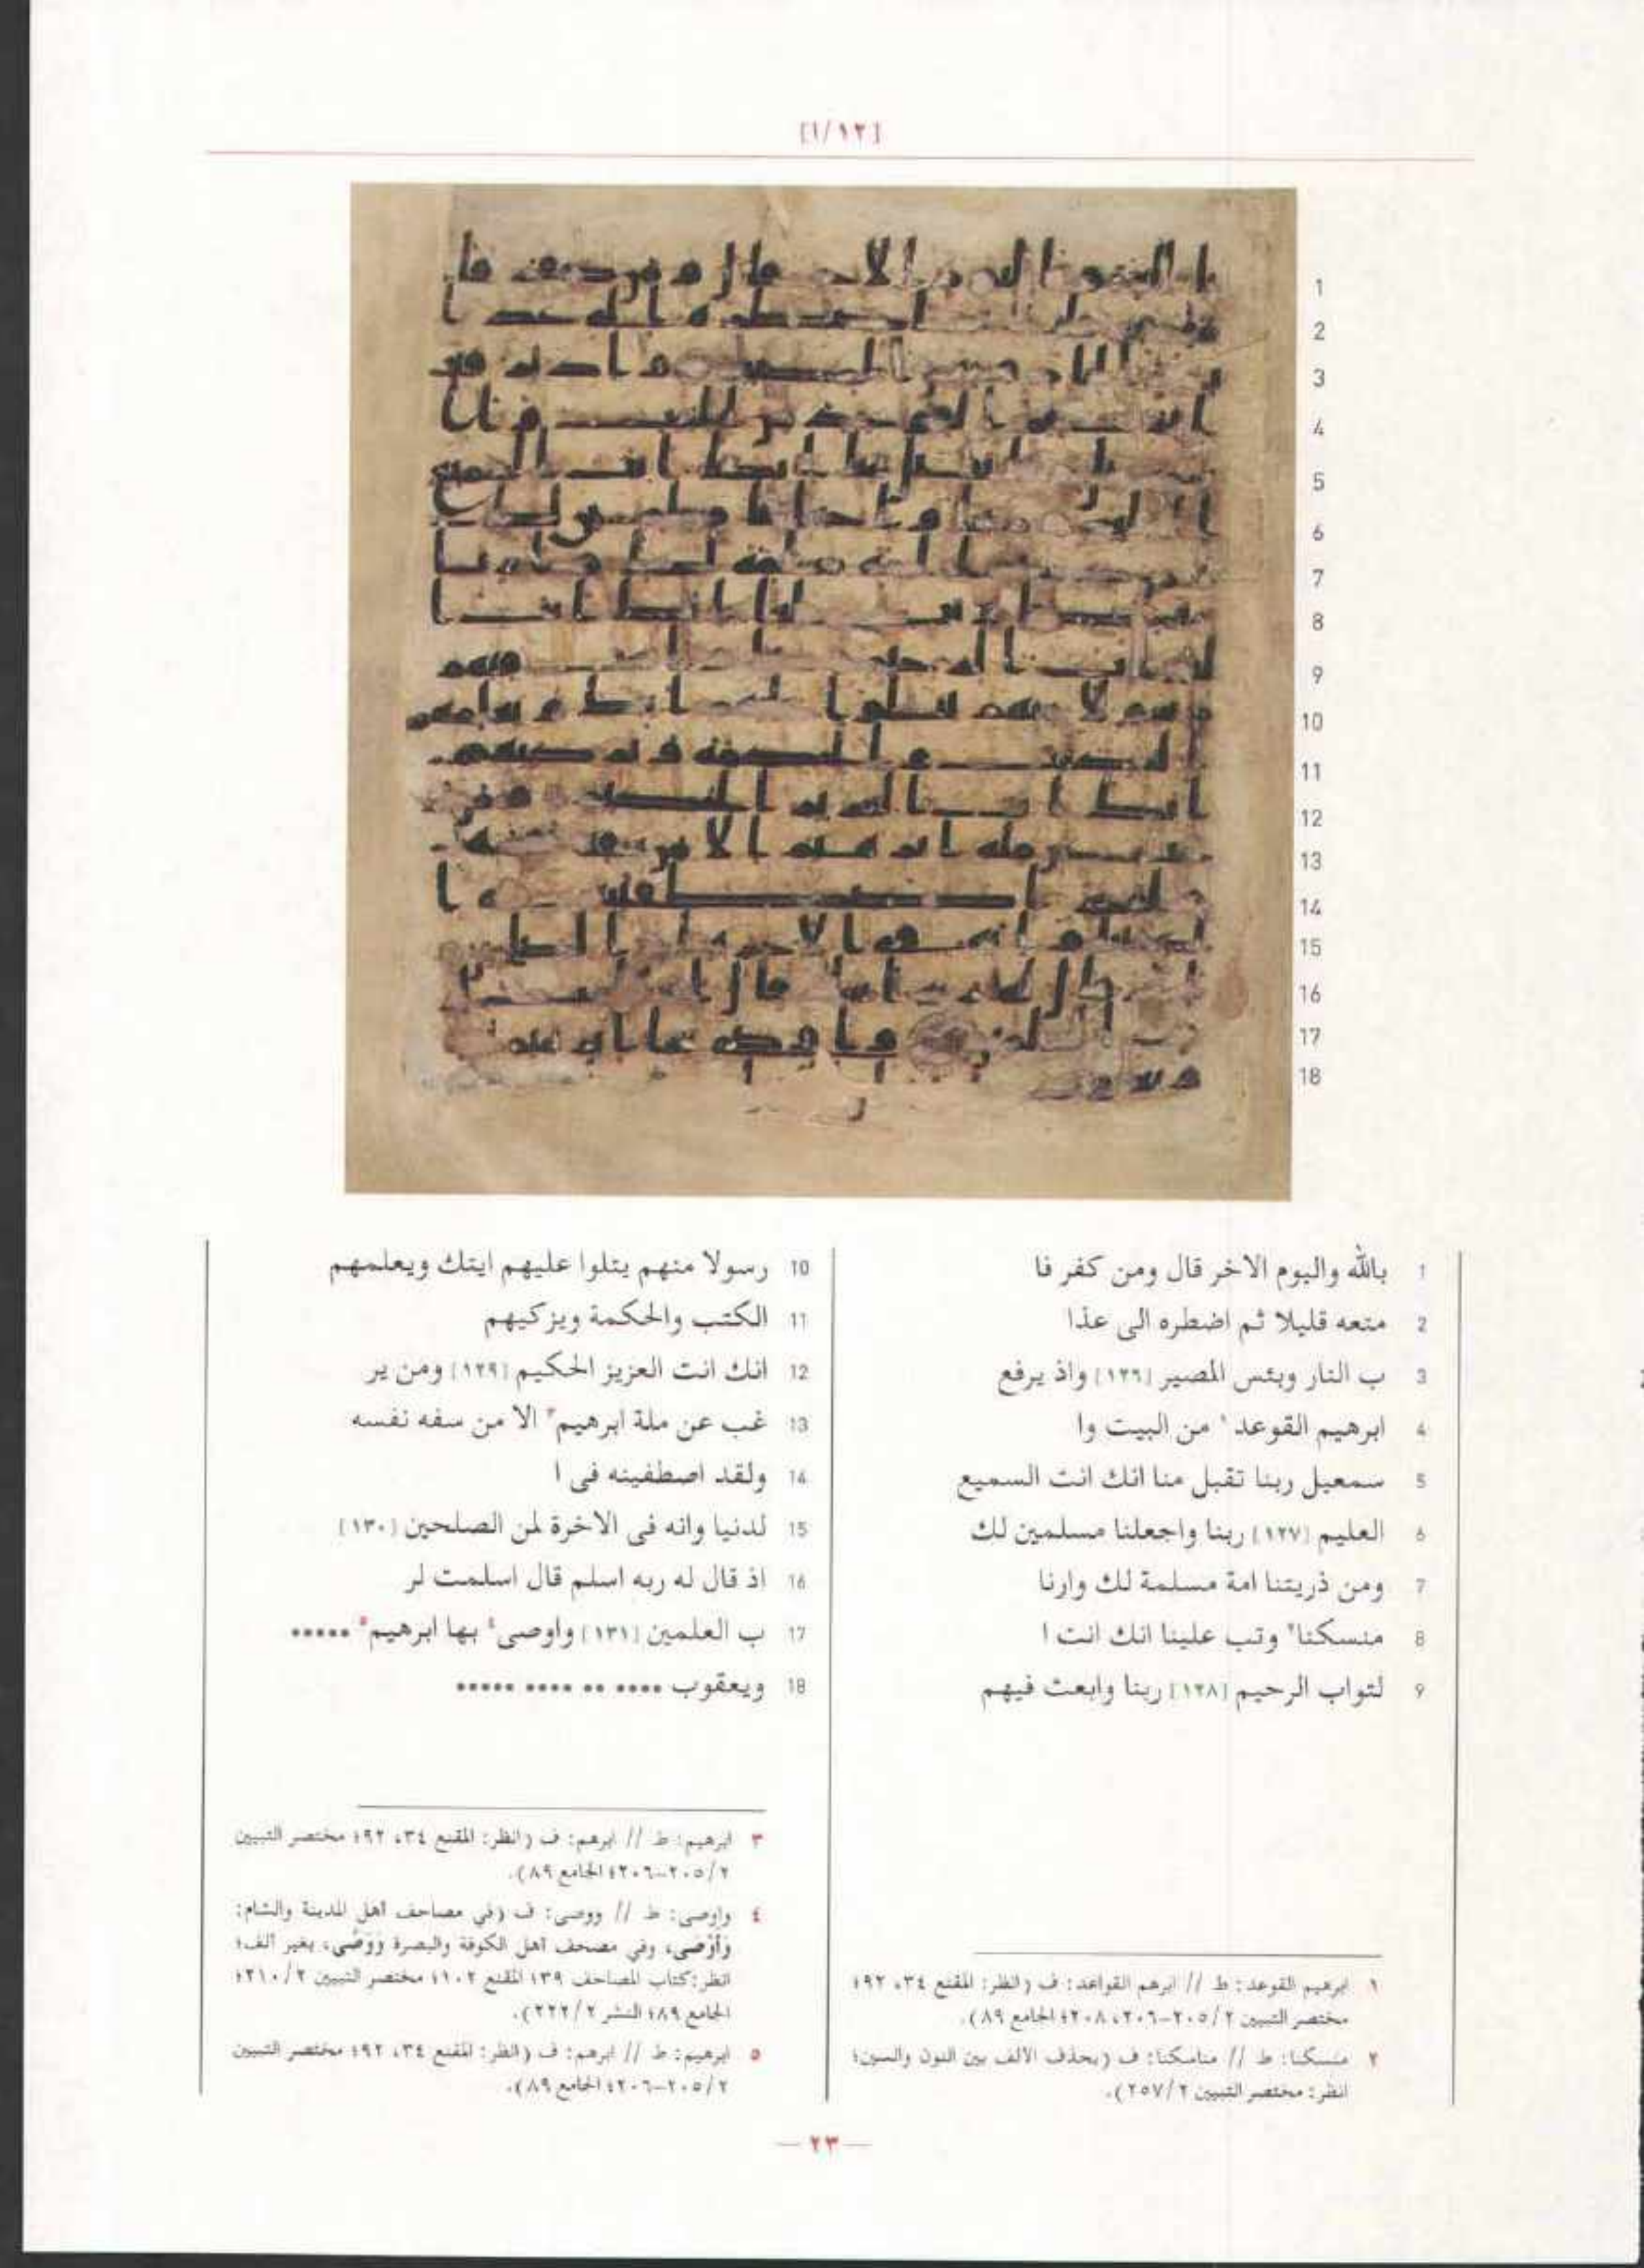 [١/١٢]
1 بالله واليوم الاخر قال ومن كفر فا
2 متعه قليلا ثم اضطره الى عذا
3 ب النار وبئس المصير [١٢٦] واذ يرفع
4 ابرهيم القوعد١ من البيت وا
5 سمعيل ربنا تقبل منا انك انت السميع
6 العليم [١٢٧] ربنا واجعلنا مسلمين لك
7 ومن ذريتنا امة مسلمة لك وارنا
8 منسكنا٢ وتب علينا انك انت ا
9 لتواب الرحيم [١٢٨] ربنا وابعث فيهم
10 رسولا منهم يتلوا عليهم ايتك ويعلمهم
11 الكتب والحكمة ويزكيهم
12 انك انت العزيز الحكيم [١٢٩] ومن ير
13 غب عن ملة ابرهيم٣ الا من سفه نفسه
14 ولقد اصطفينه فى ا
15 لدنيا وانه فى الاخرة لمن الصلحين [١٣٠]
16 اذ قال له ربه اسلم قال اسلمت لر
17 ب العلمين [١٣١] واوصى٤ بها ابرهيم٥ •••••
18 ويعقوب •••• •• •••• •••••
١ ابرهيم القوعد: ط // ابرهم القواعد: ف (انظر: المقنع ٣٤، ٩٢؛
مختصر التبيين ٢/٢٠٥-٢٠٦، ٢٠٨؛ الجامع ٨٩).
٢ منسكنا: ط // مناسكنا: ف (بحذف الالف بين النون والسين؛
انظر: مختصر التبيين ٢/٢٥٧).
٣ ابرهيم: ط // ابرهم: ف (انظر: المقنع ٣٤، ٩٢؛ مختصر التبيين
٢/٢٠٥-٢٠٦؛ الجامع ٨٩).
٤ واوصى: ط // ووصى: ف (في مصاحف أهل المدينة والشام:
وَأَوْصَى، وفي مصحف أهل الكوفة والبصرة وَوَصَّى، بغير ألف؛
انظر: كتاب المصاحف ١٣٩؛ المقنع ١٠٢؛ مختصر التبيين ٢/٢١٠؛
الجامع ٨٩؛ النشر ٢/٢٢٢).
٥ ابرهيم: ط // ابرهم: ف (انظر: المقنع ٣٤، ٩٢؛ مختصر التبيين
٢/٢٠٥-٢٠٦؛ الجامع ٨٩).
— ٢٣ —